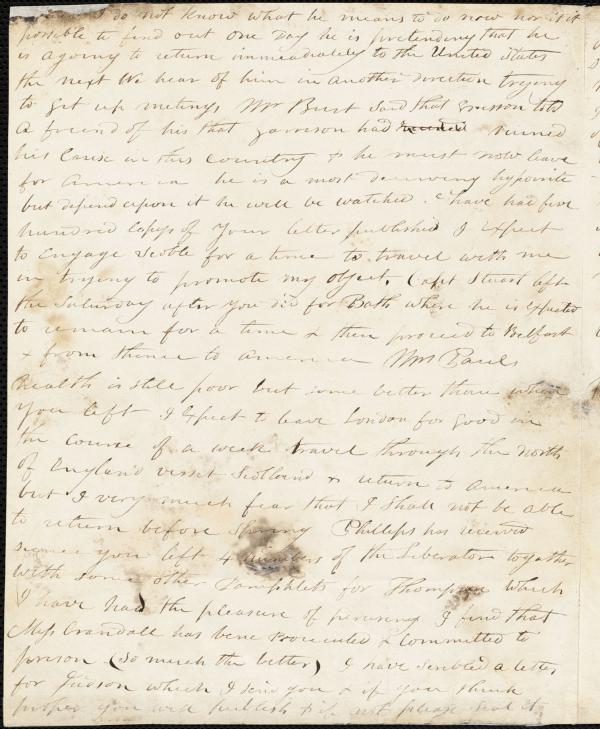 I do not know what he means to do now nor is it
possible to find out One day he is pretending that he
is agoing to return immeadiately to the United States
the next We hear of him in another direction trying
to get up meetings Mr Burt said that Cresson told
a freend of his that garrison had ruined
his Cause in this country & he must now leave
for America he is a most deceiving hypocrite
but depend upon it he will be watched. I have had five
hundred Copys of your letter published I Expect
to Engage Scoble for a time to travel with me
in trying to promote my object. Capt Stuart left
the Saturday after you did for Bath where he is Expected
to remain for a time & then proceed to Belfast
& from thence to america Mrs Pauls
Health is still poor but some better than when
you left I Expect to leave London for good in
the course of a week travel through the north
of England visset Scotland & return to America
but I very much fear that I shall not be able
to return before Spring Phillips has received
since you left 4 numbers of the Liberator togather
with some other Pamphlets for Thompson which
I have had the pleasure of perusing I find that
Miss Crandall has bene prosecuted & Committed to
prison (So much the better) I have scribled a letter
for Judson which I send you & if you think
proper you will publish & if not please seal it